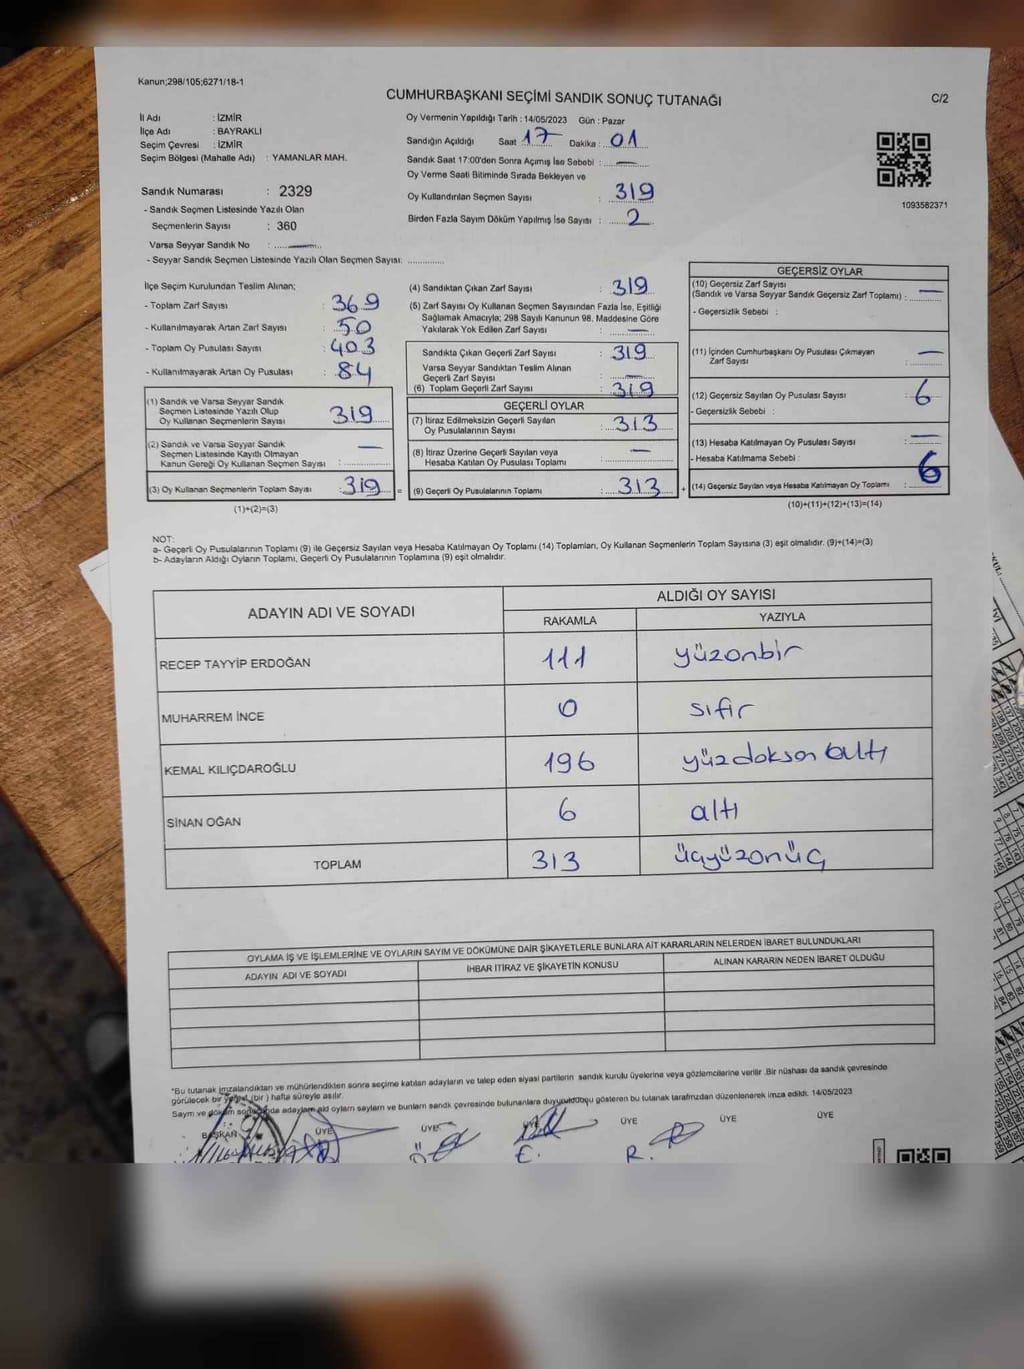 Kanun;298/105;6271/18-1
CUMHURBAŞKANI SEÇİMİ SANDIK SONUÇ TUTANAĞI
C/2
İl Adı : İZMİR
İlçe Adı : BAYRAKLI
Seçim Çevresi : İZMİR
Seçim Bölgesi (Mahalle Adı) : YAMANLAR MAH.
Sandık Numarası : 2329
- Sandık Seçmen Listesinde Yazılı Olan
Seçmenlerin Sayısı : 360
Varsa Seyyar Sandık No : —
- Seyyar Sandık Seçmen Listesinde Yazılı Olan Seçmen Sayısı: ..............
Oy Vermenin Yapıldığı Tarih : 14/05/2023 Gün : Pazar
Sandığın Açıldığı Saat 17 Dakika : 01
Sandık Saat 17:00'den Sonra Açımış İse Sebebi : —
Oy Verme Saati Bitiminde Sırada Bekleyen ve
Oy Kullandırılan Seçmen Sayısı : 319
Birden Fazla Sayım Döküm Yapılmış İse Sayısı : 2
1093582371
İlçe Seçim Kurulundan Teslim Alınan;
- Toplam Zarf Sayısı : 369
- Kullanılmayarak Artan Zarf Sayısı : 50
- Toplam Oy Pusulası Sayısı : 403
- Kullanılmayarak Artan Oy Pusulası : 84
(1) Sandık ve Varsa Seyyar Sandık
Seçmen Listesinde Yazılı Olup
Oy Kullanan Seçmenlerin Sayısı : 319
(2) Sandık ve Varsa Seyyar Sandık
Seçmen Listesinde Kayıtlı Olmayan
Kanun Gereği Oy Kullanan Seçmen Sayısı : —
(3) Oy Kullanan Seçmenlerin Toplam Sayısı : 319 =
(1)+(2)=(3)
(4) Sandıktan Çıkan Zarf Sayısı : 319
(5) Zarf Sayısı Oy Kullanan Seçmen Sayısından Fazla İse, Eşitliği
Sağlamak Amacıyla; 298 Sayılı Kanunun 98. Maddesine Göre
Yakılarak Yok Edilen Zarf Sayısı : —
Sandıkta Çıkan Geçerli Zarf Sayısı : 319
Varsa Seyyar Sandıktan Teslim Alınan
Geçerli Zarf Sayısı : —
(6) Toplam Geçerli Zarf Sayısı : 319
GEÇERLİ OYLAR
(7) İtiraz Edilmeksizin Geçerli Sayılan
Oy Pusulalarının Sayısı : 313
(8) İtiraz Üzerine Geçerli Sayılan veya
Hesaba Katılan Oy Pusulası Toplamı : —
(9) Geçerli Oy Pusulalarının Toplamı : 313 +
GEÇERSİZ OYLAR
(10) Geçersiz Zarf Sayısı
(Sandık ve Varsa Seyyar Sandık Geçersiz Zarf Toplamı) : —
- Geçersizlik Sebebi :
(11) İçinden Cumhurbaşkanı Oy Pusulası Çıkmayan
Zarf Sayısı : —
(12) Geçersiz Sayılan Oy Pusulası Sayısı : 6
- Geçersizlik Sebebi :
(13) Hesaba Katılmayan Oy Pusulası Sayısı : —
- Hesaba Katılmama Sebebi :
(14) Geçersiz Sayılan veya Hesaba Katılmayan Oy Toplamı : 6
(10)+(11)+(12)+(13)=(14)
NOT:
a- Geçerli Oy Pusulalarının Toplamı (9) ile Geçersiz Sayılan veya Hesaba Katılmayan Oy Toplamı (14) Toplamları, Oy Kullanan Seçmenlerin Toplam Sayısına (3) eşit olmalıdır. (9)+(14)=(3)
b- Adayların Aldığı Oyların Toplamı, Geçerli Oy Pusulalarının Toplamına (9) eşit olmalıdır.
ADAYIN ADI VE SOYADI
ALDIĞI OY SAYISI
RAKAMLA YAZIYLA
RECEP TAYYİP ERDOĞAN 111 yüzonbir
MUHARREM İNCE 0 sıfır
KEMAL KILIÇDAROĞLU 196 yüzdoksan altı
SİNAN OĞAN 6 altı
TOPLAM 313 üçyüzonüç
OYLAMA İŞ VE İŞLEMLERİNE VE OYLARIN SAYIM VE DÖKÜMÜNE DAİR ŞİKAYETLERLE BUNLARA AİT KARARLARIN NELERDEN İBARET BULUNDUKLARI
ADAYIN ADI VE SOYADI İHBAR İTİRAZ VE ŞİKAYETİN KONUSU ALINAN KARARIN NEDEN İBARET OLDUĞU
"Bu tutanak imzalandıktan ve mühürlendikten sonra seçime katılan adayların ve talep eden siyasi partilerin sandık kurulu üyelerine veya gözlemcilerine verilir .Bir nüshası da sandık çevresinde
görülecek bir yere (bir ) hafta süreyle asılır.
Sayım ve döküm sonucunda adayların oyların sayıların ve bunların sandık çevresinde bulunanlara duyurulduğu gösteren bu tutanak tarafımızdan düzenlenerek imza edildi. 14/05/2023
BAŞKAN ÜYE ÜYE ÜYE ÜYE ÜYE ÜYE
E. R.